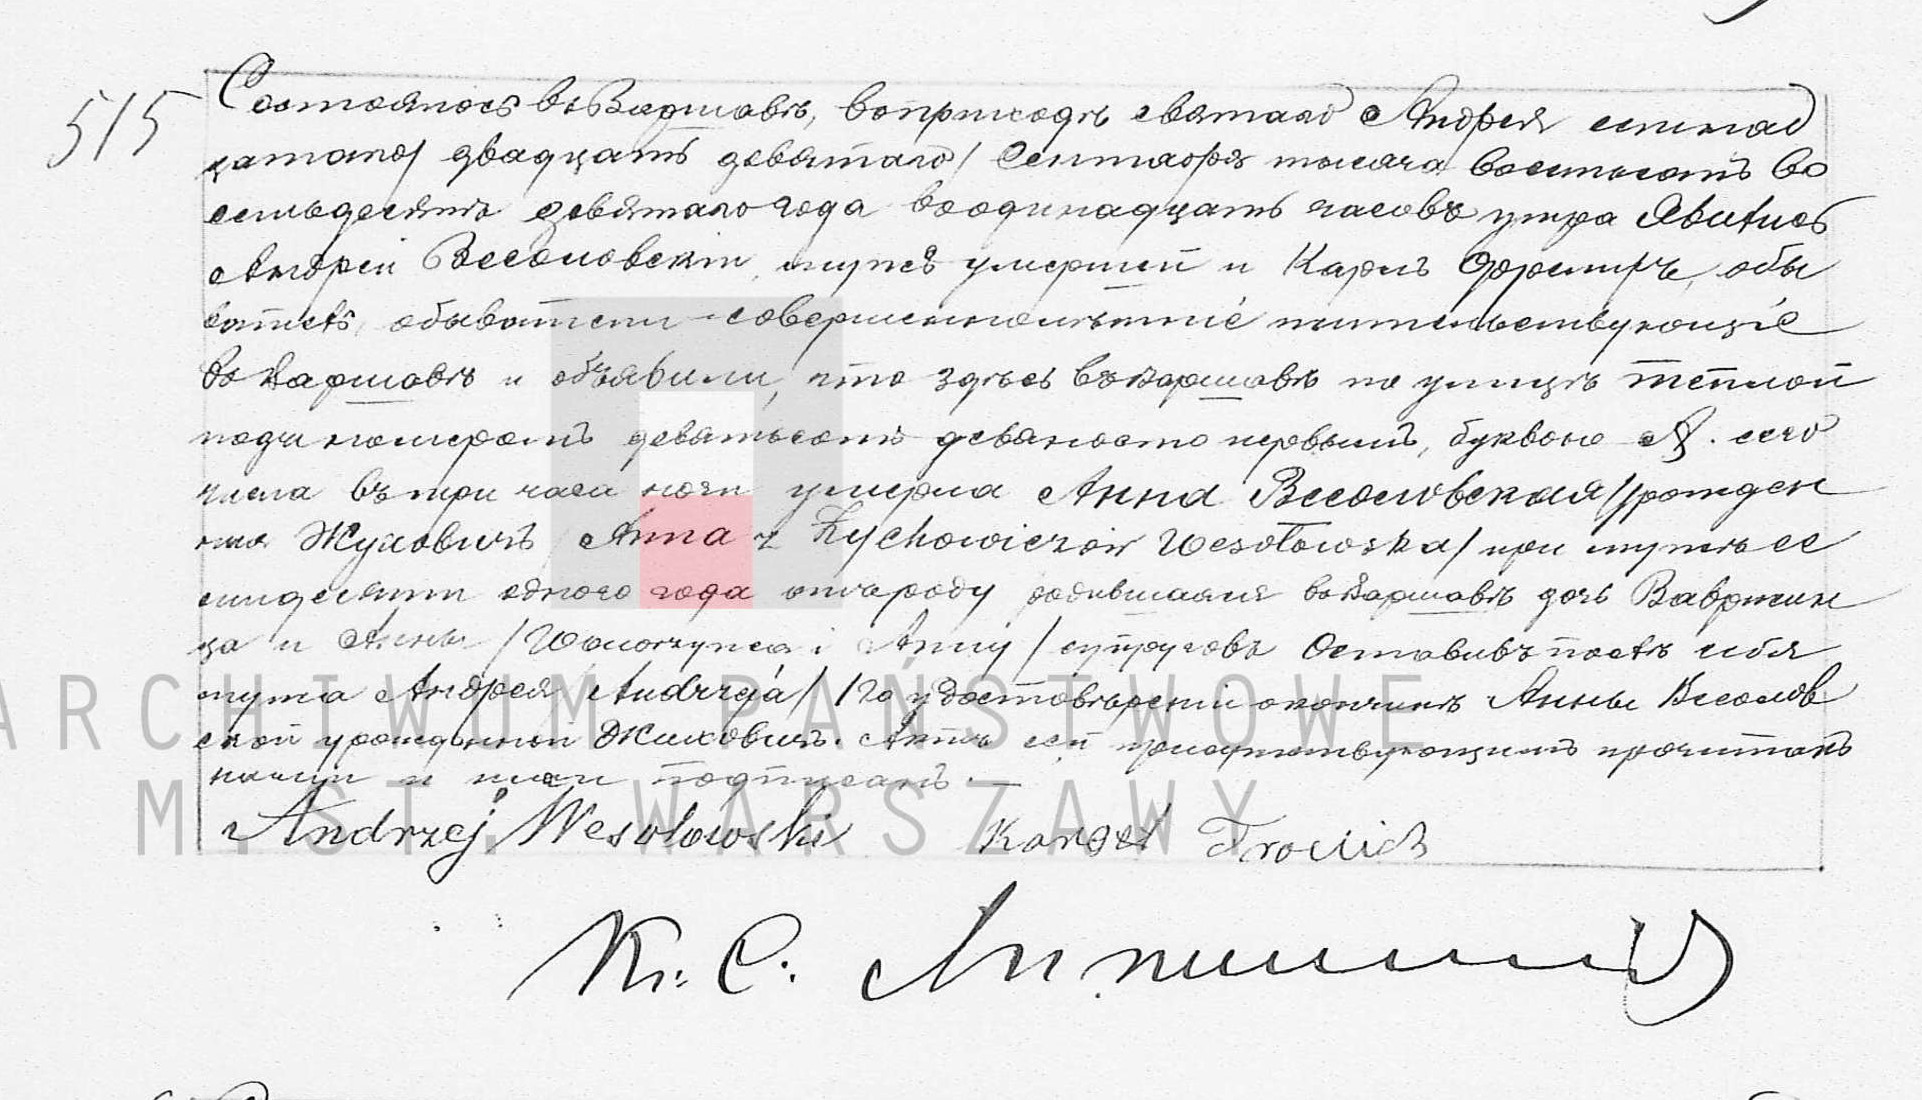 515
Состоялось въ Варшавѣ, въ приходѣ святаго Андрея семнад
цатаго / двадцать девятаго / Сентября тысяча восемьсотъ во
семьдесятъ девятаго года въ одинадцать часовъ утра Явились
Андрей Весоловскій, мужъ умершей и Карлъ обы
ватель, обыватели совершеннолѣтніе жительствующіе
въ Варшавѣ и объявили, что здѣсь въ Варшавѣ по улицѣ Теплой
подъ номеромъ девятьсотъ девяносто первымъ, буквою А. сего
числа въ три часа ночи умерла Анна Весоловская / урожден
ная Жуховичъ / Anna z Żychowiczów Wesołowska / при мужѣ
одного года отъ роду родившаяся въ Варшавѣ дочь Вавржин
ца и Анны / Wawrzyńca i Anny / супруговъ Оставивъ послѣ себя
мужа Андрея / Andrzeja / По удостовѣреніи о кончинѣ Анны Весолов
ской урожденной Жиховичъ. Актъ сей присутствующимъ прочитанъ
нами и ими подписанъ. —
Andrzej Wesołowski Karol
К. С.
ARCHIWUM PAŃSTWOWE
M.ST. WARSZAWY